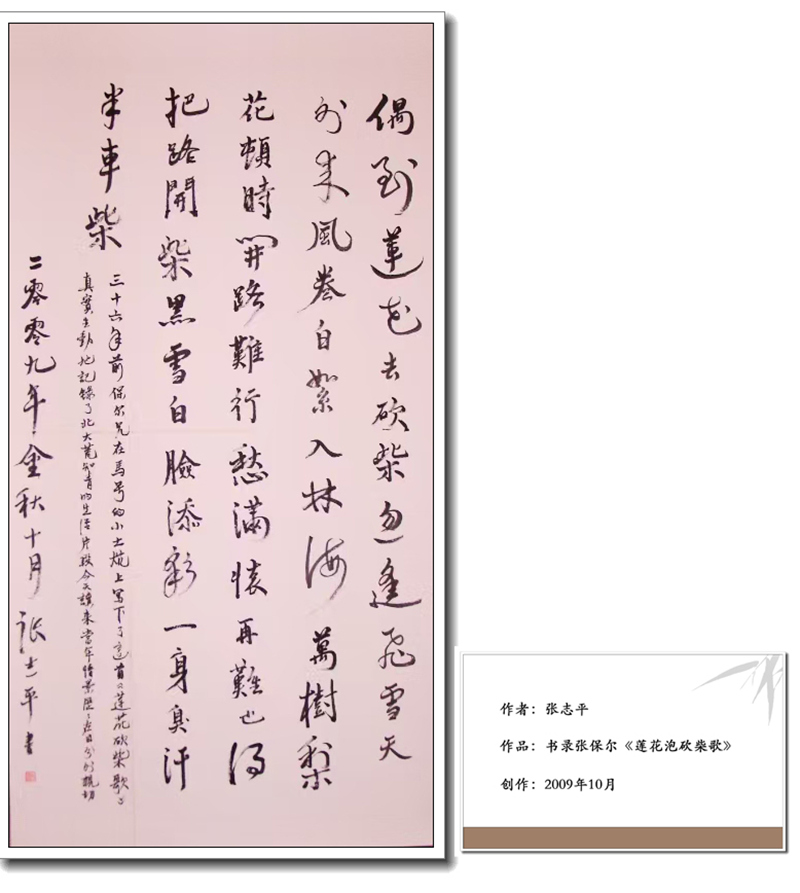 偶到蓮花去砍柴忽逢飛雪天
外来風卷白絮入林海萬樹梨
花頓時開路難行愁滿懷再難也得
把路開柴黑雪白臉添彩一身臭汗
半車柴
三十六年前保尔兄在馬号的小土炕上写下了这首《蓮花砍柴歌》
真實生動地記錄了北大荒知青的生活片段今天讀來當年情景歷歷在目分外親切
二零零九年金秋十月 张志平書
作者：张志平
作品：书录张保尔《莲花泡砍柴歌》
创作：2009年10月